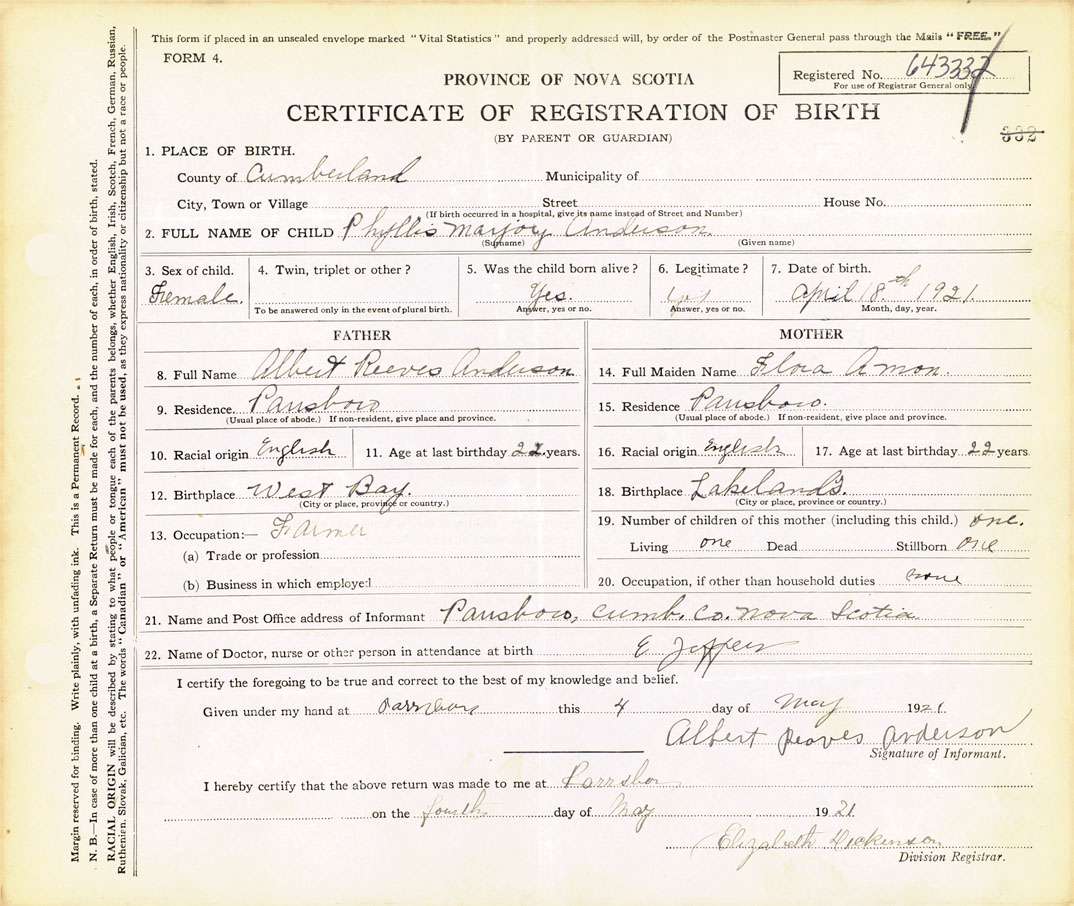 This form if placed in an unsealed envelope marked "Vital Statistics" and properly addressed will, by order of the Postmaster General pass through the Mails "FREE."
FORM 4.
PROVINCE OF NOVA SCOTIA
Registered No. 643332
For use of Registrar General only
CERTIFICATE OF REGISTRATION OF BIRTH
(BY PARENT OR GUARDIAN)
332
1. PLACE OF BIRTH.
County of Cumberland Municipality of
City, Town or Village Street House No.
(If birth occurred in a hospital, give its name instead of Street and Number)
2. FULL NAME OF CHILD Phyllis Marjory Anderson
(Surname) (Given name)
3. Sex of child. 4. Twin, triplet or other? 5. Was the child born alive? 6. Legitimate? 7. Date of birth.
Female. Yes. April 18th 1921
To be answered only in the event of plural birth. Answer, yes or no. Answer, yes or no. Month, day, year.
FATHER
8. Full Name Albert Reeves Anderson
9. Residence. Parrsboro
(Usual place of abode.) If non-resident, give place and province.
10. Racial origin English 11. Age at last birthday years.
12. Birthplace West Bay.
(City or place, province or country.)
13. Occupation:— Farmer
(a) Trade or profession
(b) Business in which employed
MOTHER
14. Full Maiden Name Flora Amon.
15. Residence Parrsboro.
(Usual place of abode.) If non-resident, give place and province.
16. Racial origin English 17. Age at last birthday 22 years.
18. Birthplace Lakelands.
(City or place, province or country.)
19. Number of children of this mother (including this child.) one.
Living one Dead Stillborn one
20. Occupation, if other than household duties none
21. Name and Post Office address of Informant Parrsboro, Cumb. Co. Nova Scotia
22. Name of Doctor, nurse or other person in attendance at birth E Jeffers
I certify the foregoing to be true and correct to the best of my knowledge and belief.
Given under my hand at Parrsboro this 4 day of May 1921
Albert Reeves Anderson
Signature of Informant.
I hereby certify that the above return was made to me at Parrsboro
on the fourth day of May 1921
Elizabeth Dickinson
Division Registrar.
Margin reserved for binding. Write plainly, with unfading ink. This is a Permanent Record.
N. B.—In case of more than one child at a birth, a Separate Return must be made for each, and the number of each, in order of birth, stated.
RACIAL ORIGIN will be described by stating to what people or tongue each of the parents belongs, whether English, Irish, Scotch, French, German, Russian,
Ruthenian, Slovak, Galician, etc. The words "Canadian" or "American" must not be used, as they express nationality or citizenship but not a race or people.